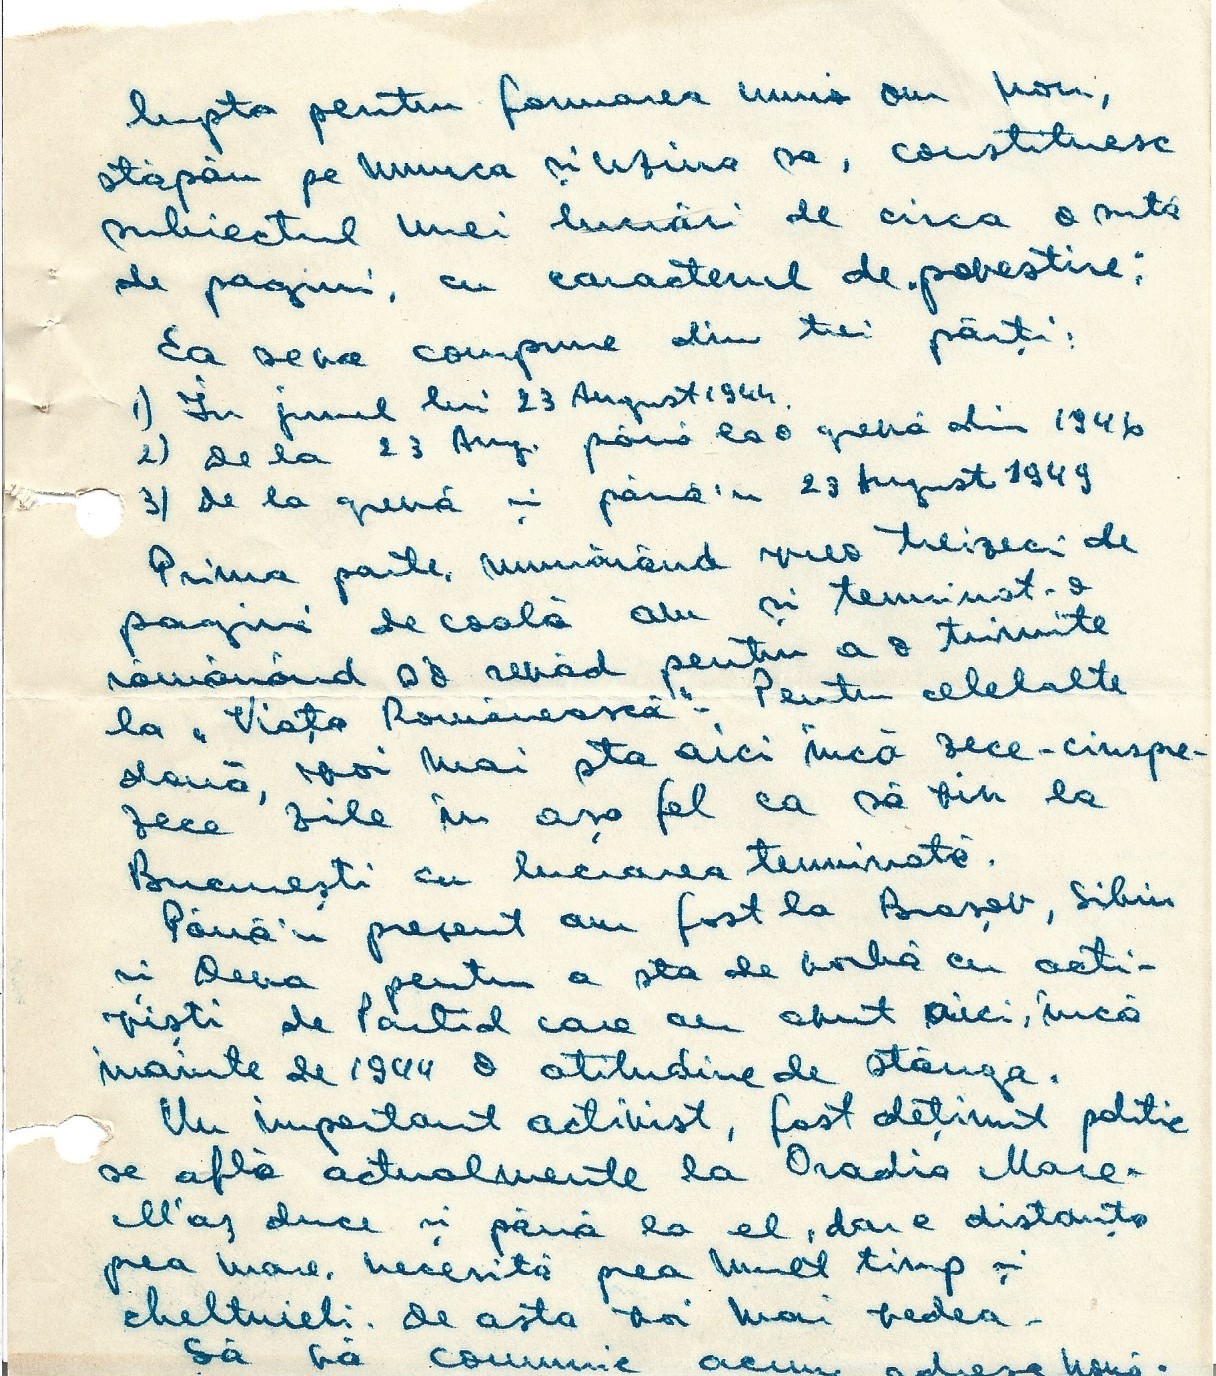 lupta pentru formarea unui om nou,
stăpân pe munca și uzina sa, constituesc
subiectul unei lucrări de circa o sută
de pagini, cu caracterul de povestire;
Ea se va compune din trei părți:
1) În jurul lui 23 August 1944.
2) De la 23 Aug. până la o grevă din 1946
3) De la grevă și până'n 23 August 1949
Prima parte, numărând vreo treizeci de
pagini de coală am și terminat-o
rămânând s'o revăd pentru a o trimite
la „Viața Românească". Pentru celelalte
două, voi mai sta aici încă zece-cinspre-
zece zile în așa fel ca să vin la
București cu lucrarea terminată.
Până'n prezent am fost la Brașov, Sibiu
și Deva pentru a sta de vorbă cu acti-
viști de Partid care au avut aici, încă
înainte de 1944 o atitudine de stânga.
Un important activist, fost deținut politic
se află actualmente la Oradia Mare.
M'aș duce și până la el, dar e distanța
prea mare, necesită prea mult timp și
cheltuieli. De asta voi mai vedea.
Să vă comunic acum adresa nouă.